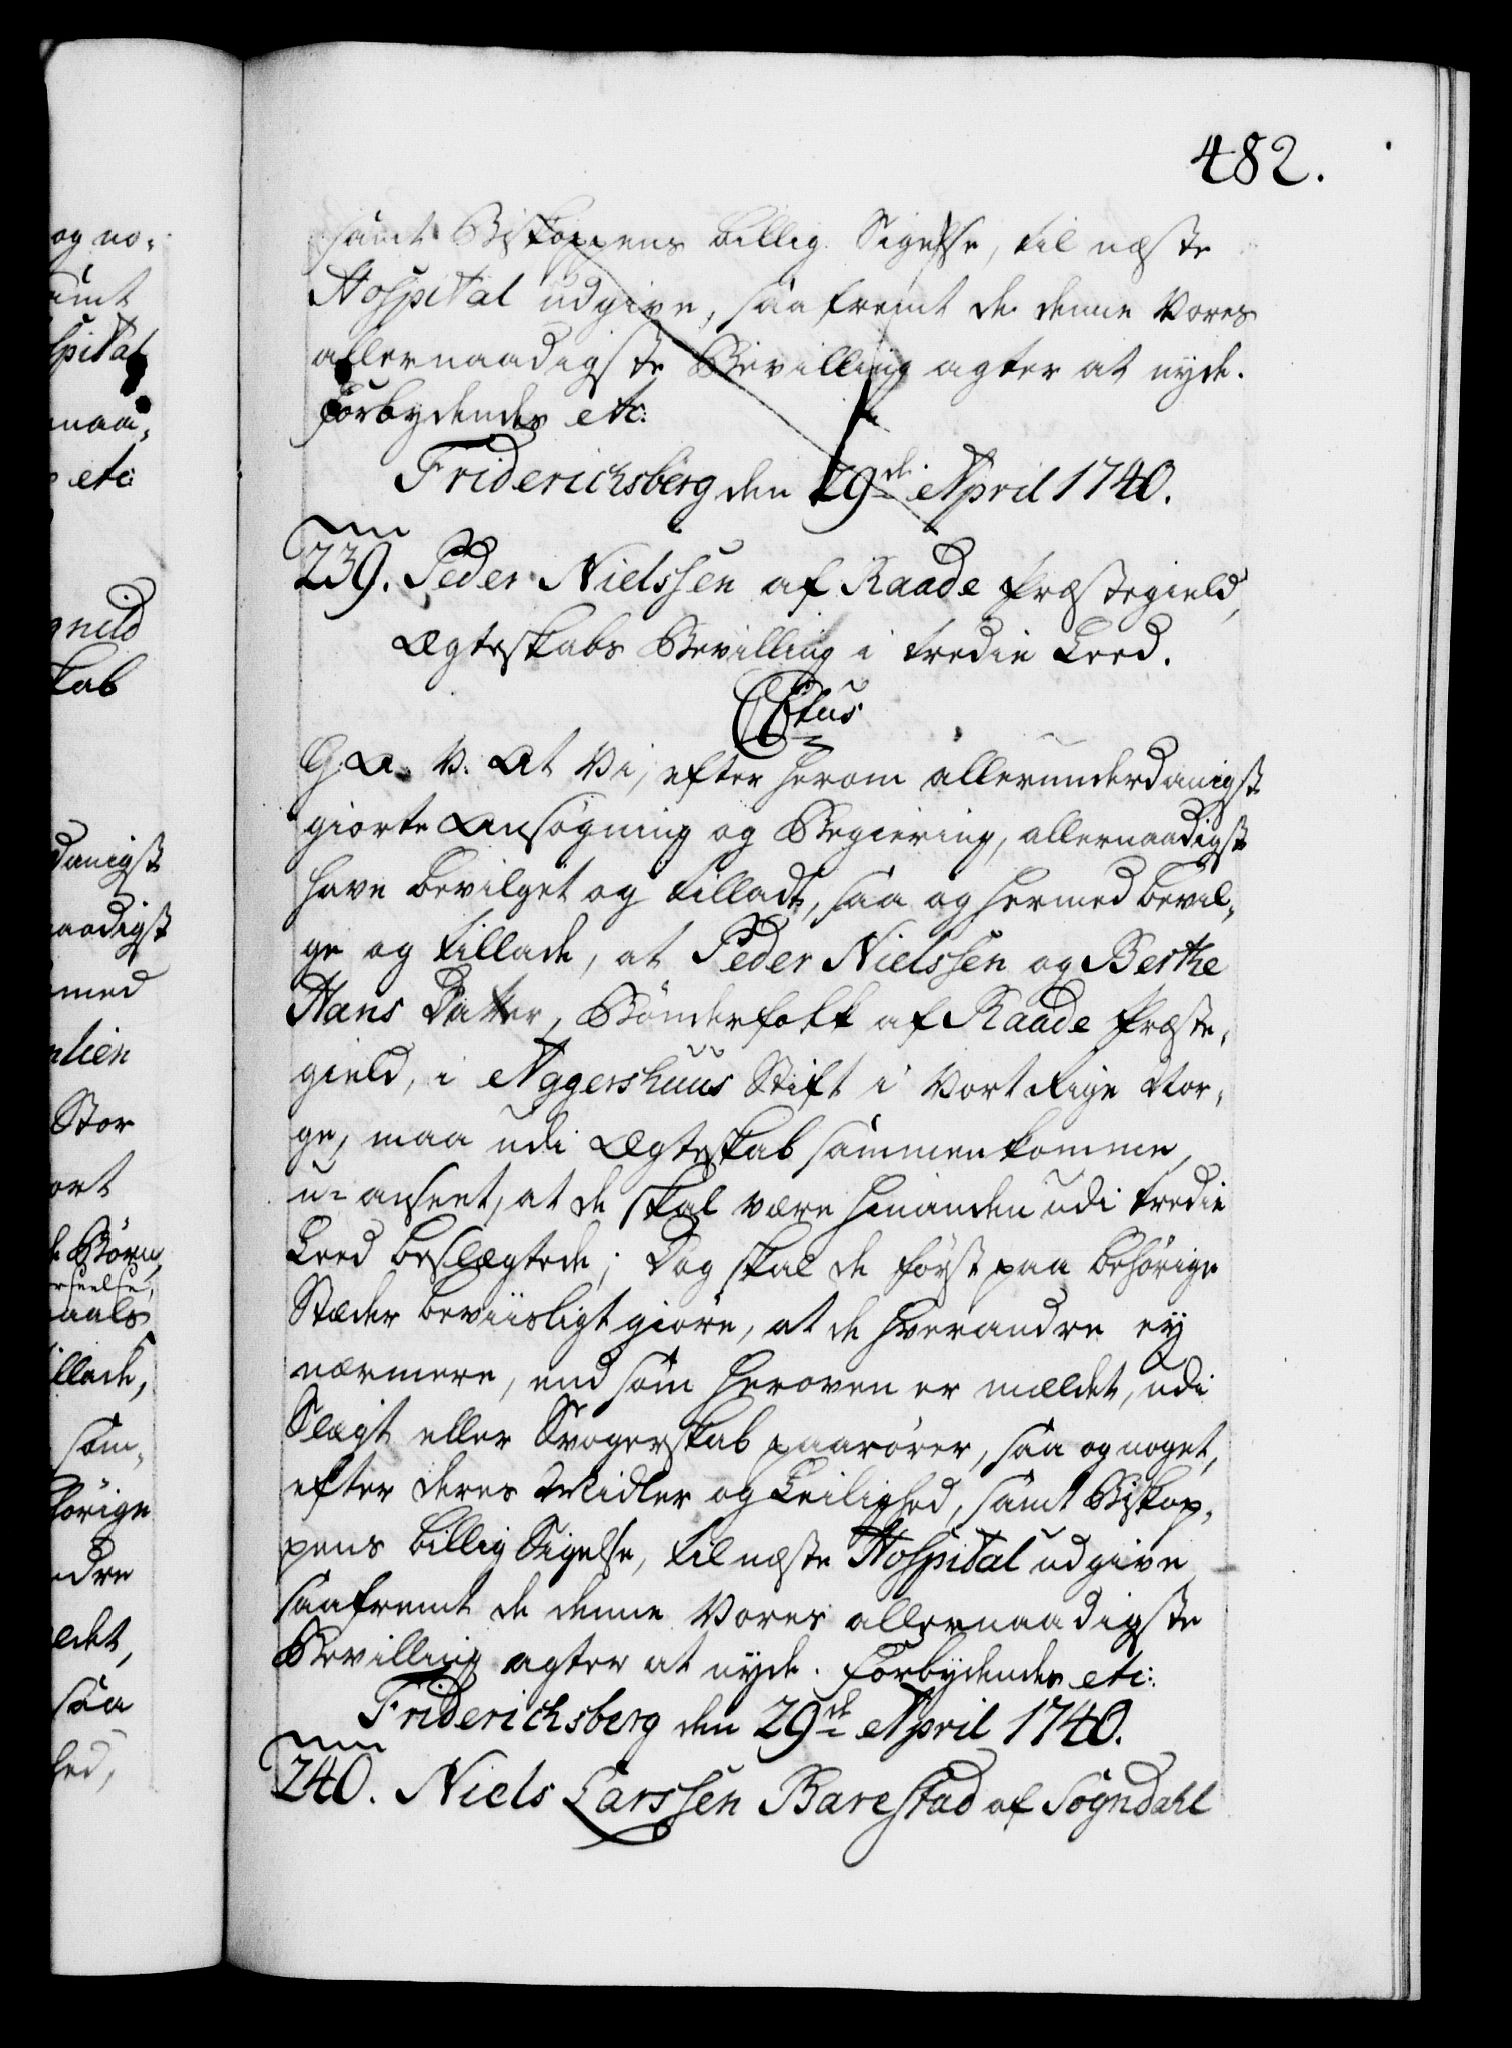 482.
samt Biskoppens billig Sigelse, til næste
Hospital udgive, saafremt de denne Vores
allernaadigste Bevilling agter at nyde.
Forbydendes etc:
Friderichsberg den 29de April 1740.
239. Peder Nielssen af Raade Præstegield,
Ægteskabs Bevilling i tredie Leed.
C6tus
G. A. V. At Vi, efter herom allerunderdanigst
giorte Ansøgning og Begiering, allernaadigst
have bevilget og tilladt, saa og hermed bevil-
ge og tillade, at Peder Nielssen og Berthe
Hans Datter, Bønderfolk af Raade Præste-
gield, i Aggershuus Stift i Vort Rige Nor-
ge, maa udi Ægteskab sammenkomme,
u-anseet, at de skal være hinanden udi tredie
Leed beslægtede; Dog skal de først paa behørige
Stæder beviisligt giøre, at de hverandre ey
nærmere, end som heroven er meldet, udi
Slægt eller Svogerskab paarører, saa og noget,
efter deres Midler og Leilighed, samt Biskop-
pens billig Sigelse, til næste Hospital udgive
saafremt de denne Vores allernaadigste
Bevilling agter at nyde. Forbydendes etc:
Friderichsberg den 29de April 1740.
240. Niels Larssen Barestad af Sogndahl
og no-
amt
spital
naa-
etc:
gneld
skab
danigst
naadigst
med
nlien
Stor
ort
de Børn,
rseelse,
aals
illade,
sam-
hørige
ndre
eldet,
saa
hed,